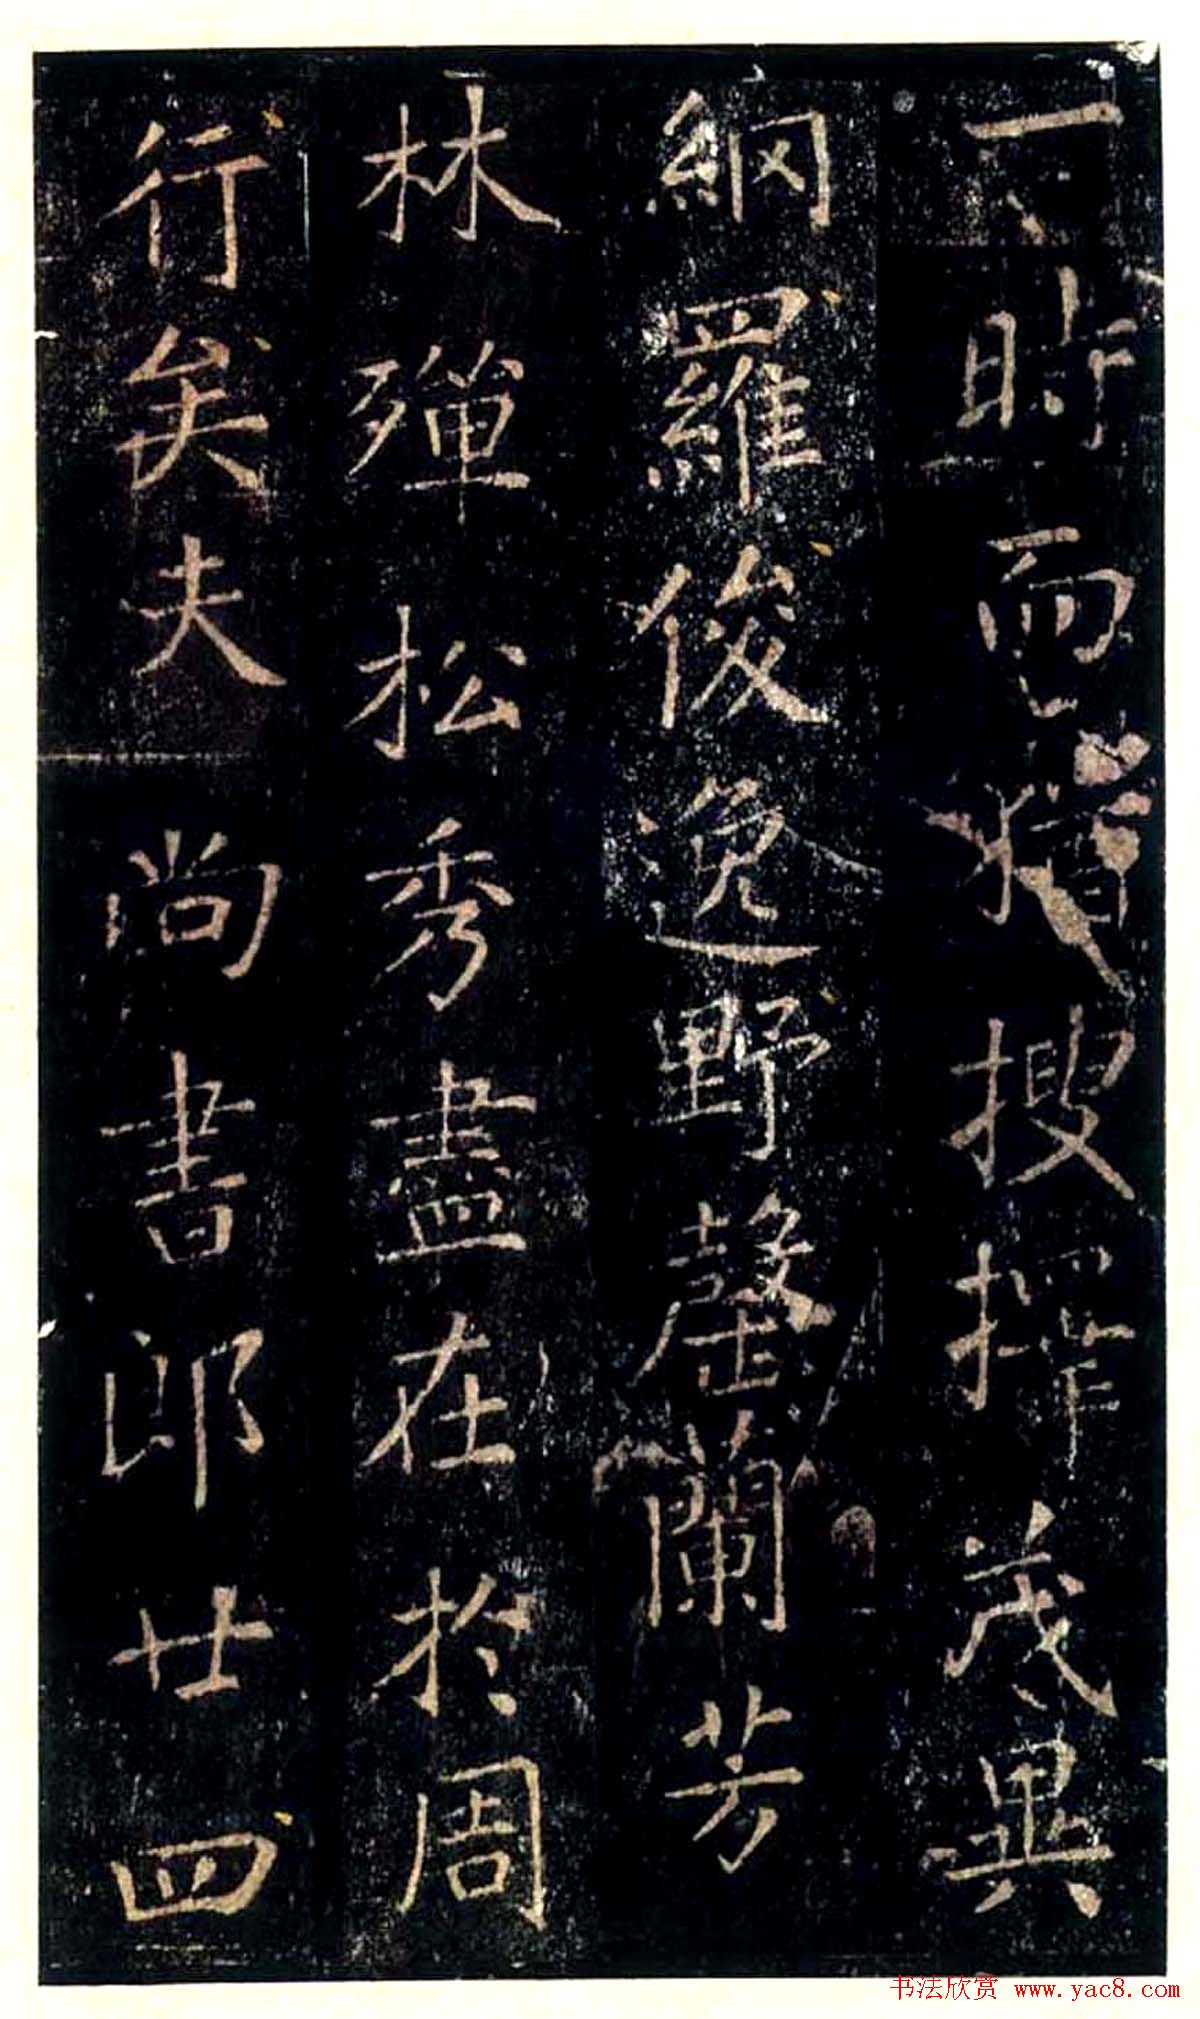 下時而猶搜擇茂異
網羅俊逸野罄蘭芳
林殫松秀盡在於周
行矣夫尚書郎廿四
书法欣赏 www.yac8.com